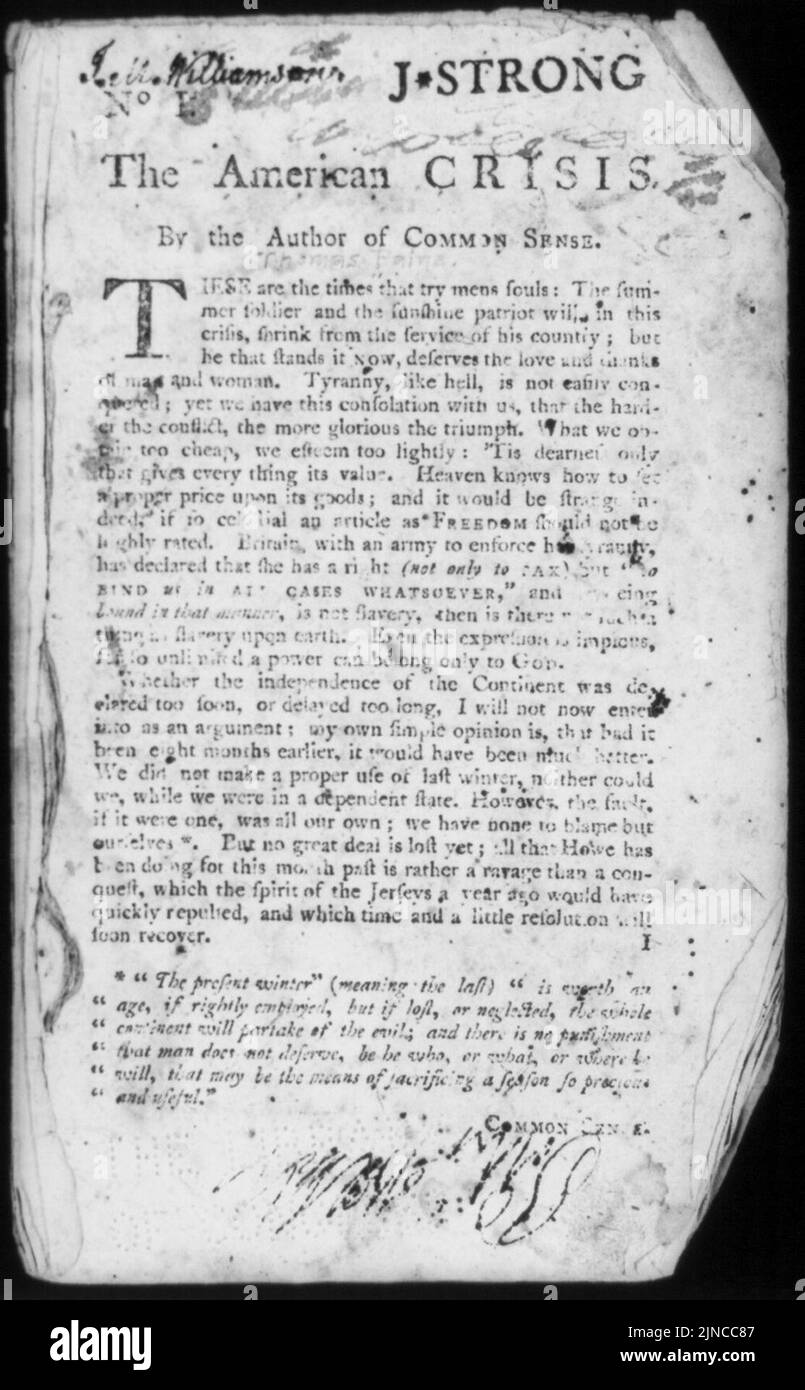 Williamson
J*STRONG
No I.
The American CRISIS.
By the Author of COMMON SENSE.
Thomas Paine.
THESE are the times that try mens ſouls: The ſum-
mer ſoldier and the ſunſhine patriot will, in this
criſis, ſhrink from the ſervice of his country; but
he that ſtands it NOW, deſerves the love and thanks
of man and woman. Tyranny, like hell, is not eaſily con-
quered; yet we have this conſolation with us, that the hard-
er the conflict, the more glorious the triumph. What we ob-
tain too cheap, we eſteem too lightly: 'Tis dearneſs only
that gives every thing its value. Heaven knows how to ſet
a proper price upon its goods; and it would be ſtrange in-
deed, if ſo celeſtial an article as FREEDOM ſhould not be
highly rated. Britain, with an army to enforce her tyranny,
has declared that ſhe has a right (not only to TAX) but "to
BIND us in ALL CASES WHATSOEVER," and if being
bound in that manner, is not ſlavery, then is there not ſuch a
thing as ſlavery upon earth. Even the expreſſion is impious,
for ſo unlimited a power can belong only to GOD.
Whether the independence of the Continent was de-
clared too ſoon, or delayed too long, I will not now enter
into as an argument; my own ſimple opinion is, that had it
been eight months earlier, it would have been much better.
We did not make a proper uſe of laſt winter, neither could
we, while we were in a dependent ſtate. However, the fault,
if it were one, was all our own; we have none to blame but
ourſelves *. But no great deal is loſt yet; all that Howe has
been doing for this month paſt is rather a ravage than a con-
queſt, which the ſpirit of the Jerſeys a year ago would have
quickly repulſed, and which time and a little reſolution will
ſoon recover. I
* " The preſent winter" (meaning the laſt) " is worth an
" age, if rightly employed, but if loſt, or neglected, the whole
" continent will partake of the evil; and there is no puniſhment
" that man does not deſerve, be he who, or what, or where he
" will, that may be the means of ſacrificing a ſeaſon ſo precious
" and uſeful."
COMMON SENSE.
alamy
Image ID: 2JNCC87
www.alamy.com